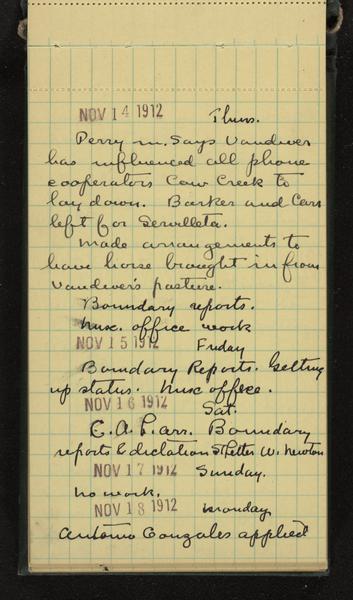 NOV 14 1912 Thurs.
Perry M. Says Vandiver
has influenced all phone
cooperators Cow Creek to
lay down. Barker and Carr
left for Servilleta.
Made arrangements to
have horse brought in from
Vandiver's pasture.
Boundary reports.
Misc. office work
NOV 15 1912 Friday
Boundary Reports. Getting
up status. Misc office.
NOV 16 1912 Sat.
arr. Boundary
reports & dictation letter W. Newton
NOV 17 1912 Sunday.
No work.
NOV 18 1912 Monday
Antonio Gonzales applied